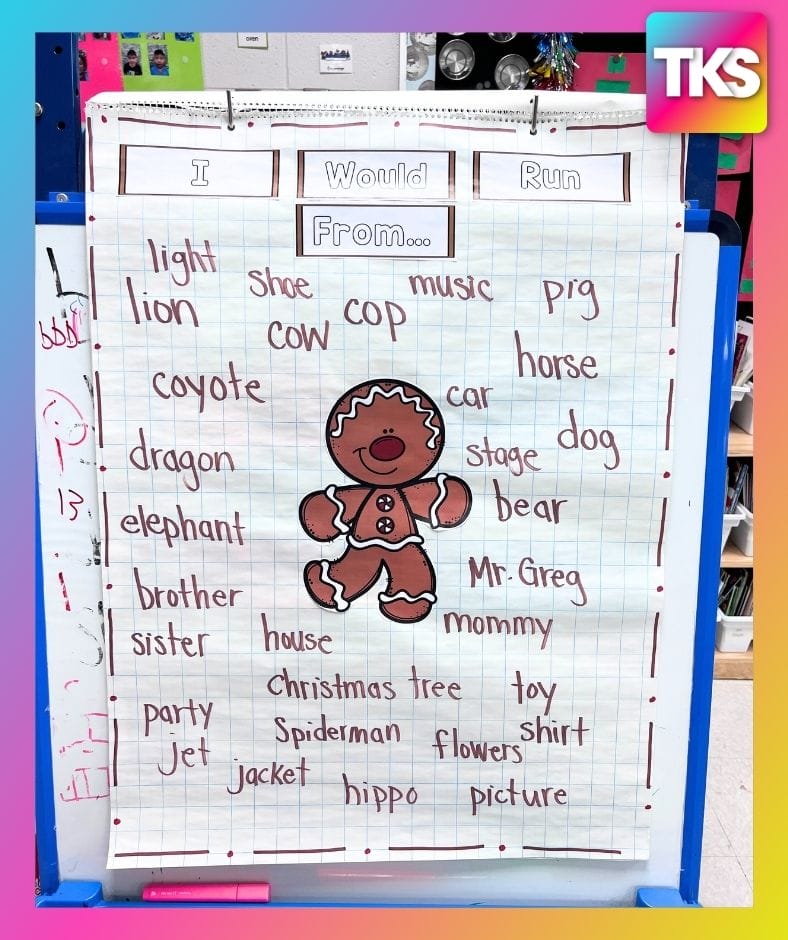 TKS
I Would Run
From...
light
shoe
music
pig
lion
cow
cop
horse
coyote
car
dragon
stage
dog
elephant
bear
brother
Mr. Greg
sister
house
mommy
Christmas tree
toy
party
Spiderman
flowers
shirt
jet
jacket
hippo
picture
13